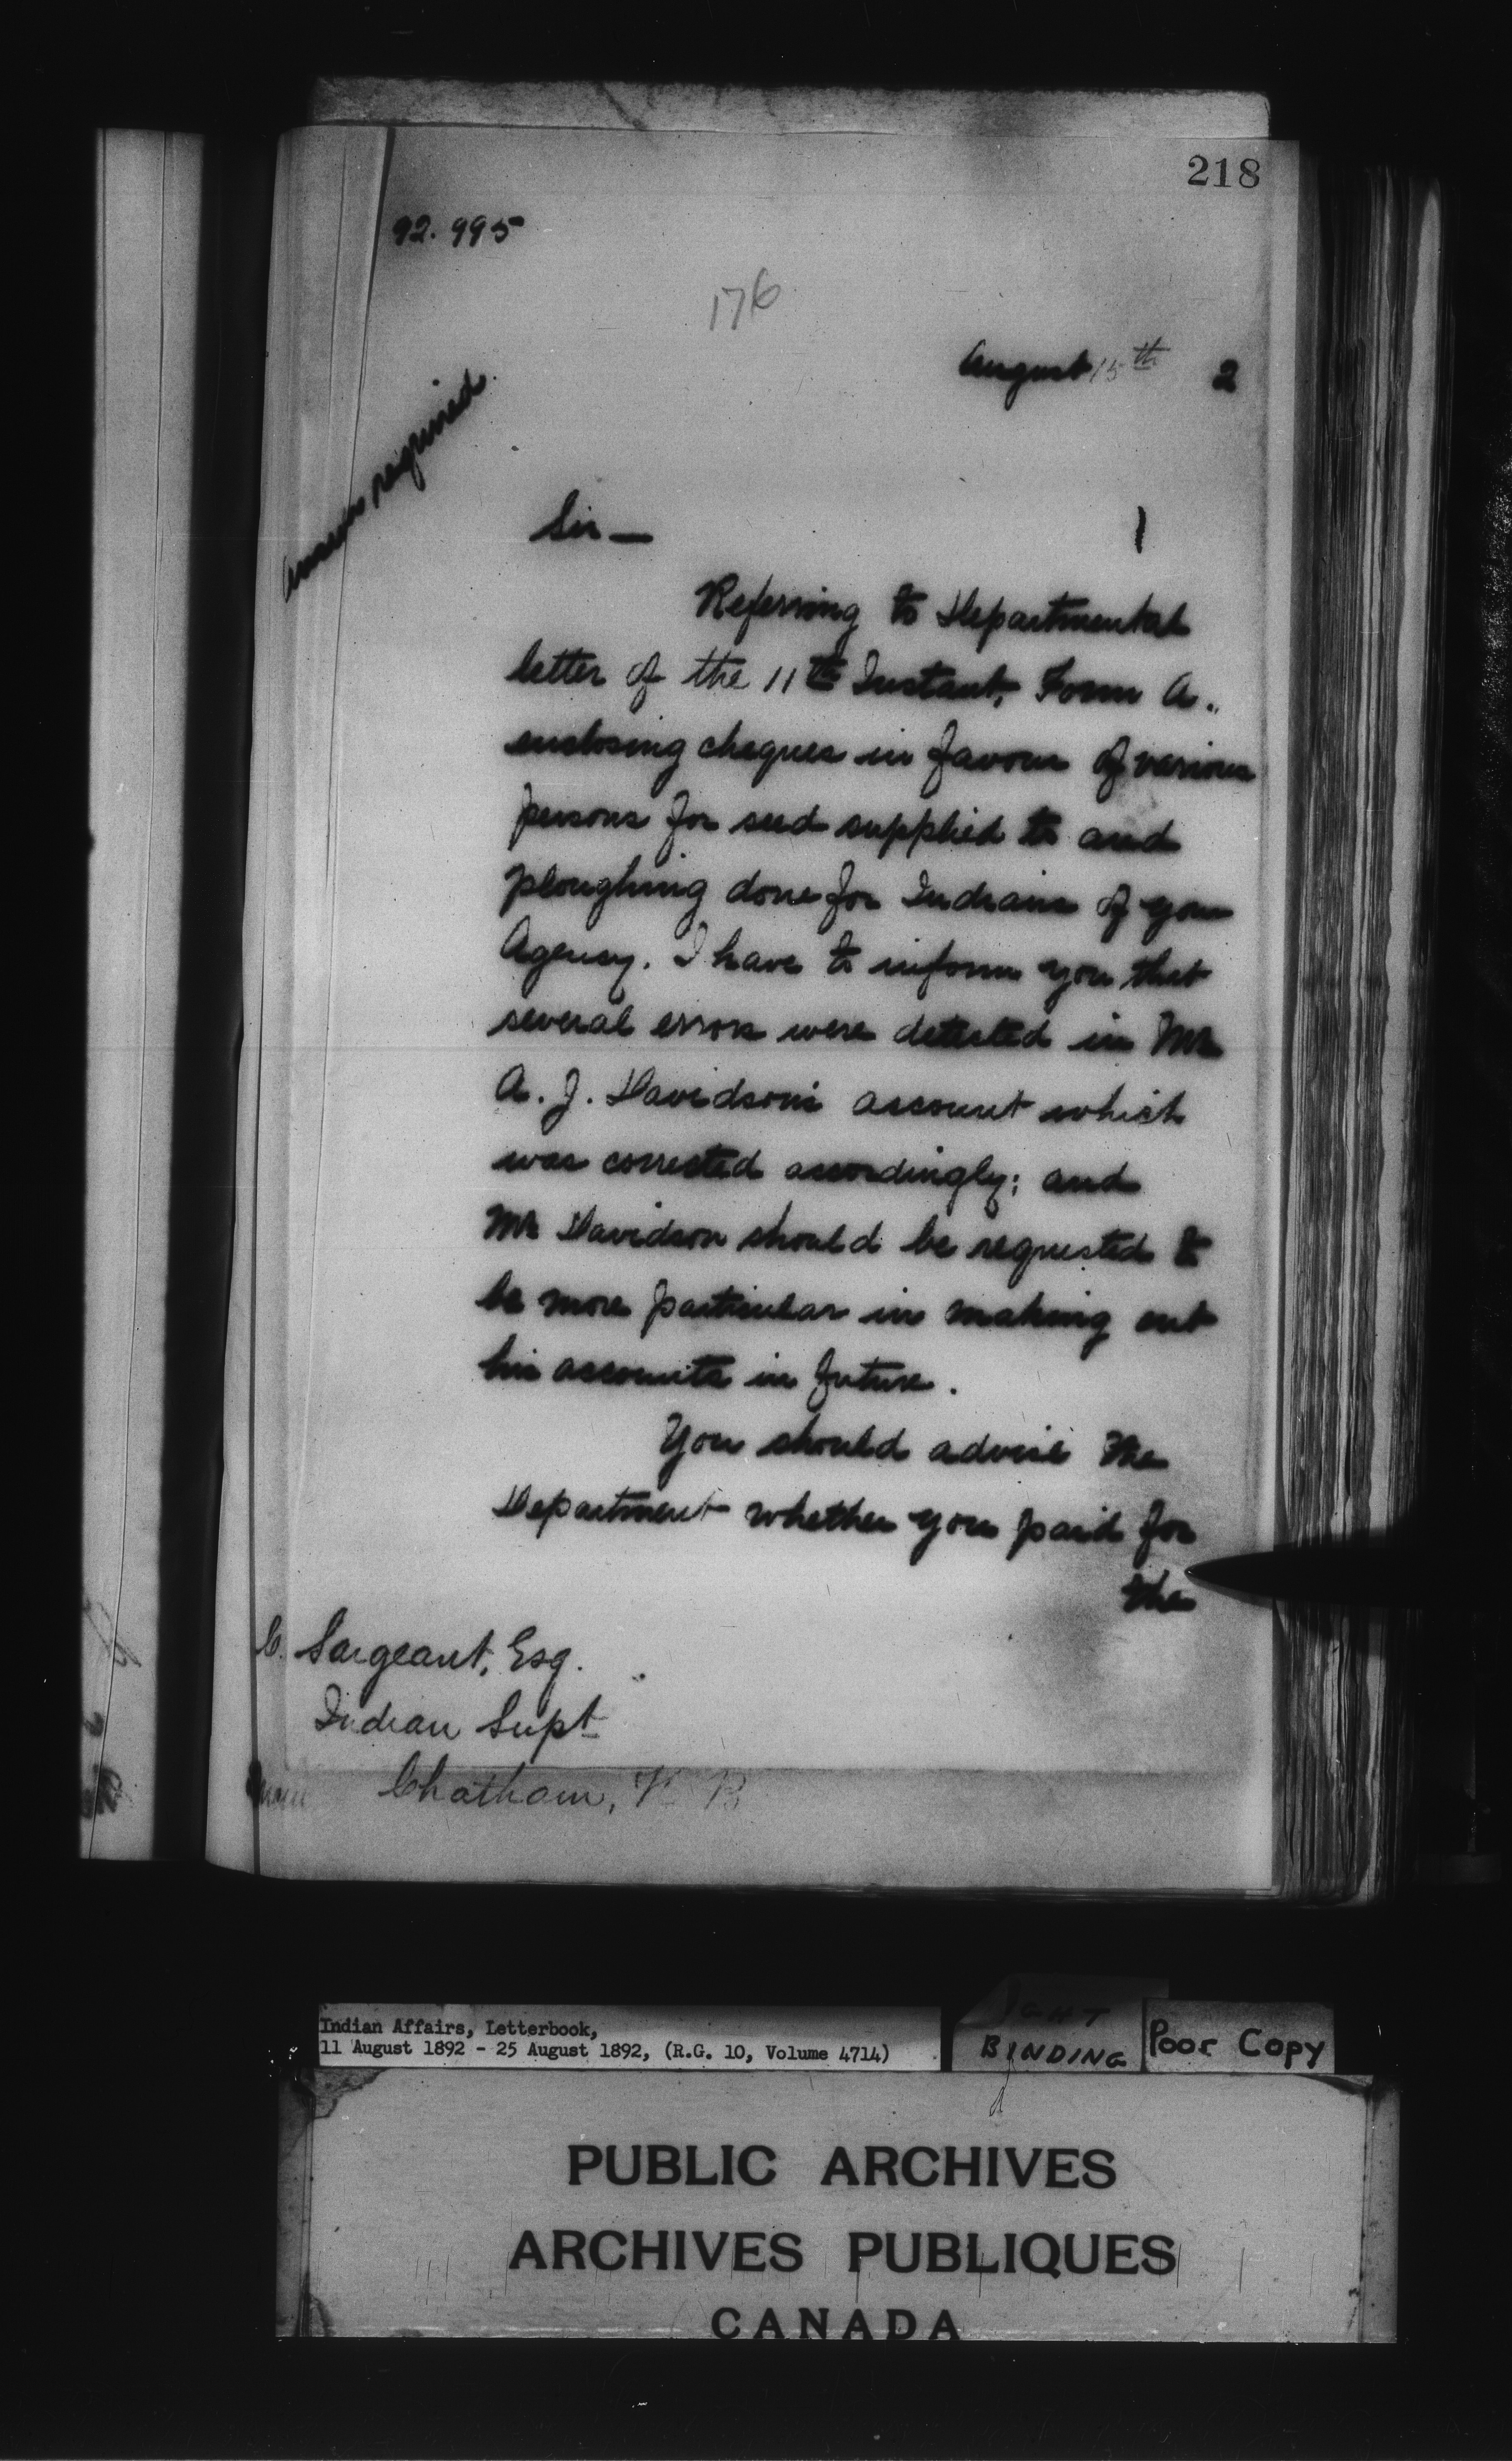 218
92.995
176
August 15th 2
Answer required.
Sir—
Referring to Departmental
letter of the 11th Instant, Form A.,
enclosing cheques in favour of various
persons for seed supplied to and
ploughing done for Indians of your
Agency. I have to inform you that
several errors were detected in Mr
A. J. Davidson's account which
was corrected accordingly; and
Mr Davidson should be requested to
be more particular in making out
his accounts in future.
You should advise the
Department whether you paid for
the
C. Sargeant, Esq.
Indian Supt
Chatham, N B
Indian Affairs, Letterbook,
11 August 1892 - 25 August 1892, (R.G. 10, Volume 4714)
BINDING
Poor Copy
PUBLIC ARCHIVES
ARCHIVES PUBLIQUES
CANADA